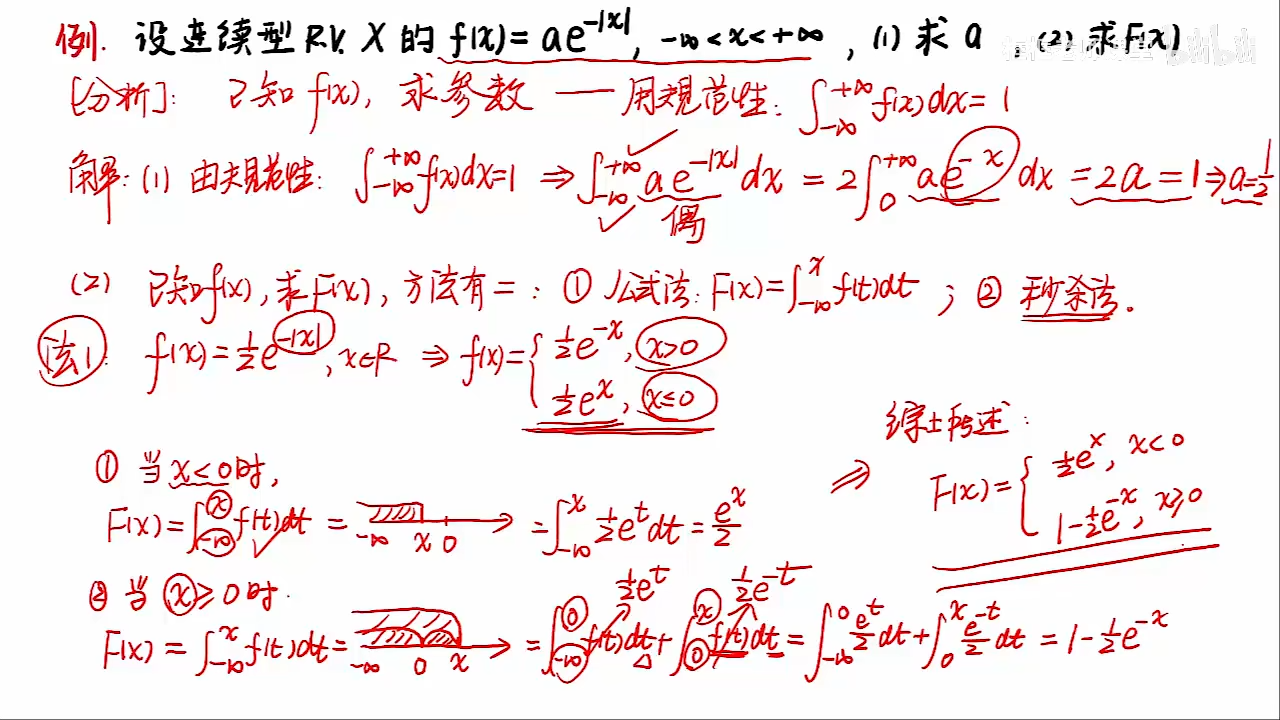 例. 设连续型 R.V. X 的 f(x) = ae^{-|x|}, -∞<x<+∞, (1) 求 a , (2) 求F(x)
[分析]: 已知 f(x), 求参数 — 用规范性: ∫_{-∞}^{+∞} f(x)dx = 1
解: (1) 由规范性: ∫_{-∞}^{+∞} f(x)dx=1 ⇒ ∫_{-∞}^{+∞} ae^{-|x|} dx = 2∫_0^{+∞} ae^{-x} dx = 2a = 1 ⇒ a=1/2
偶
(2) 已知f(x), 求F(x), 方法有二: ① 公式法: F(x)=∫_{-∞}^x f(t)dt ; ② 秒杀法.
法1: f(x)=1/2 e^{-|x|}, x∈R ⇒ f(x)= { 1/2 e^{-x}, x>0
1/2 e^x, x≤0
① 当x<0时,
F(x)=∫_{-∞}^x f(t)dt = -∞ x 0 = ∫_{-∞}^x 1/2 e^t dt = e^x/2
② 当 x≥0时.
1/2 e^t 1/2 e^{-t}
F(x) = ∫_{-∞}^x f(t)dt = -∞ 0 x = ∫_{-∞}^0 f(t)dt + ∫_0^x f(t)dt = ∫_{-∞}^0 e^t/2 dt + ∫_0^x e^{-t}/2 dt = 1-1/2 e^{-x}
综上所述:
⇒ F(x) = { 1/2 e^x, x<0
1-1/2 e^{-x}, x≥0